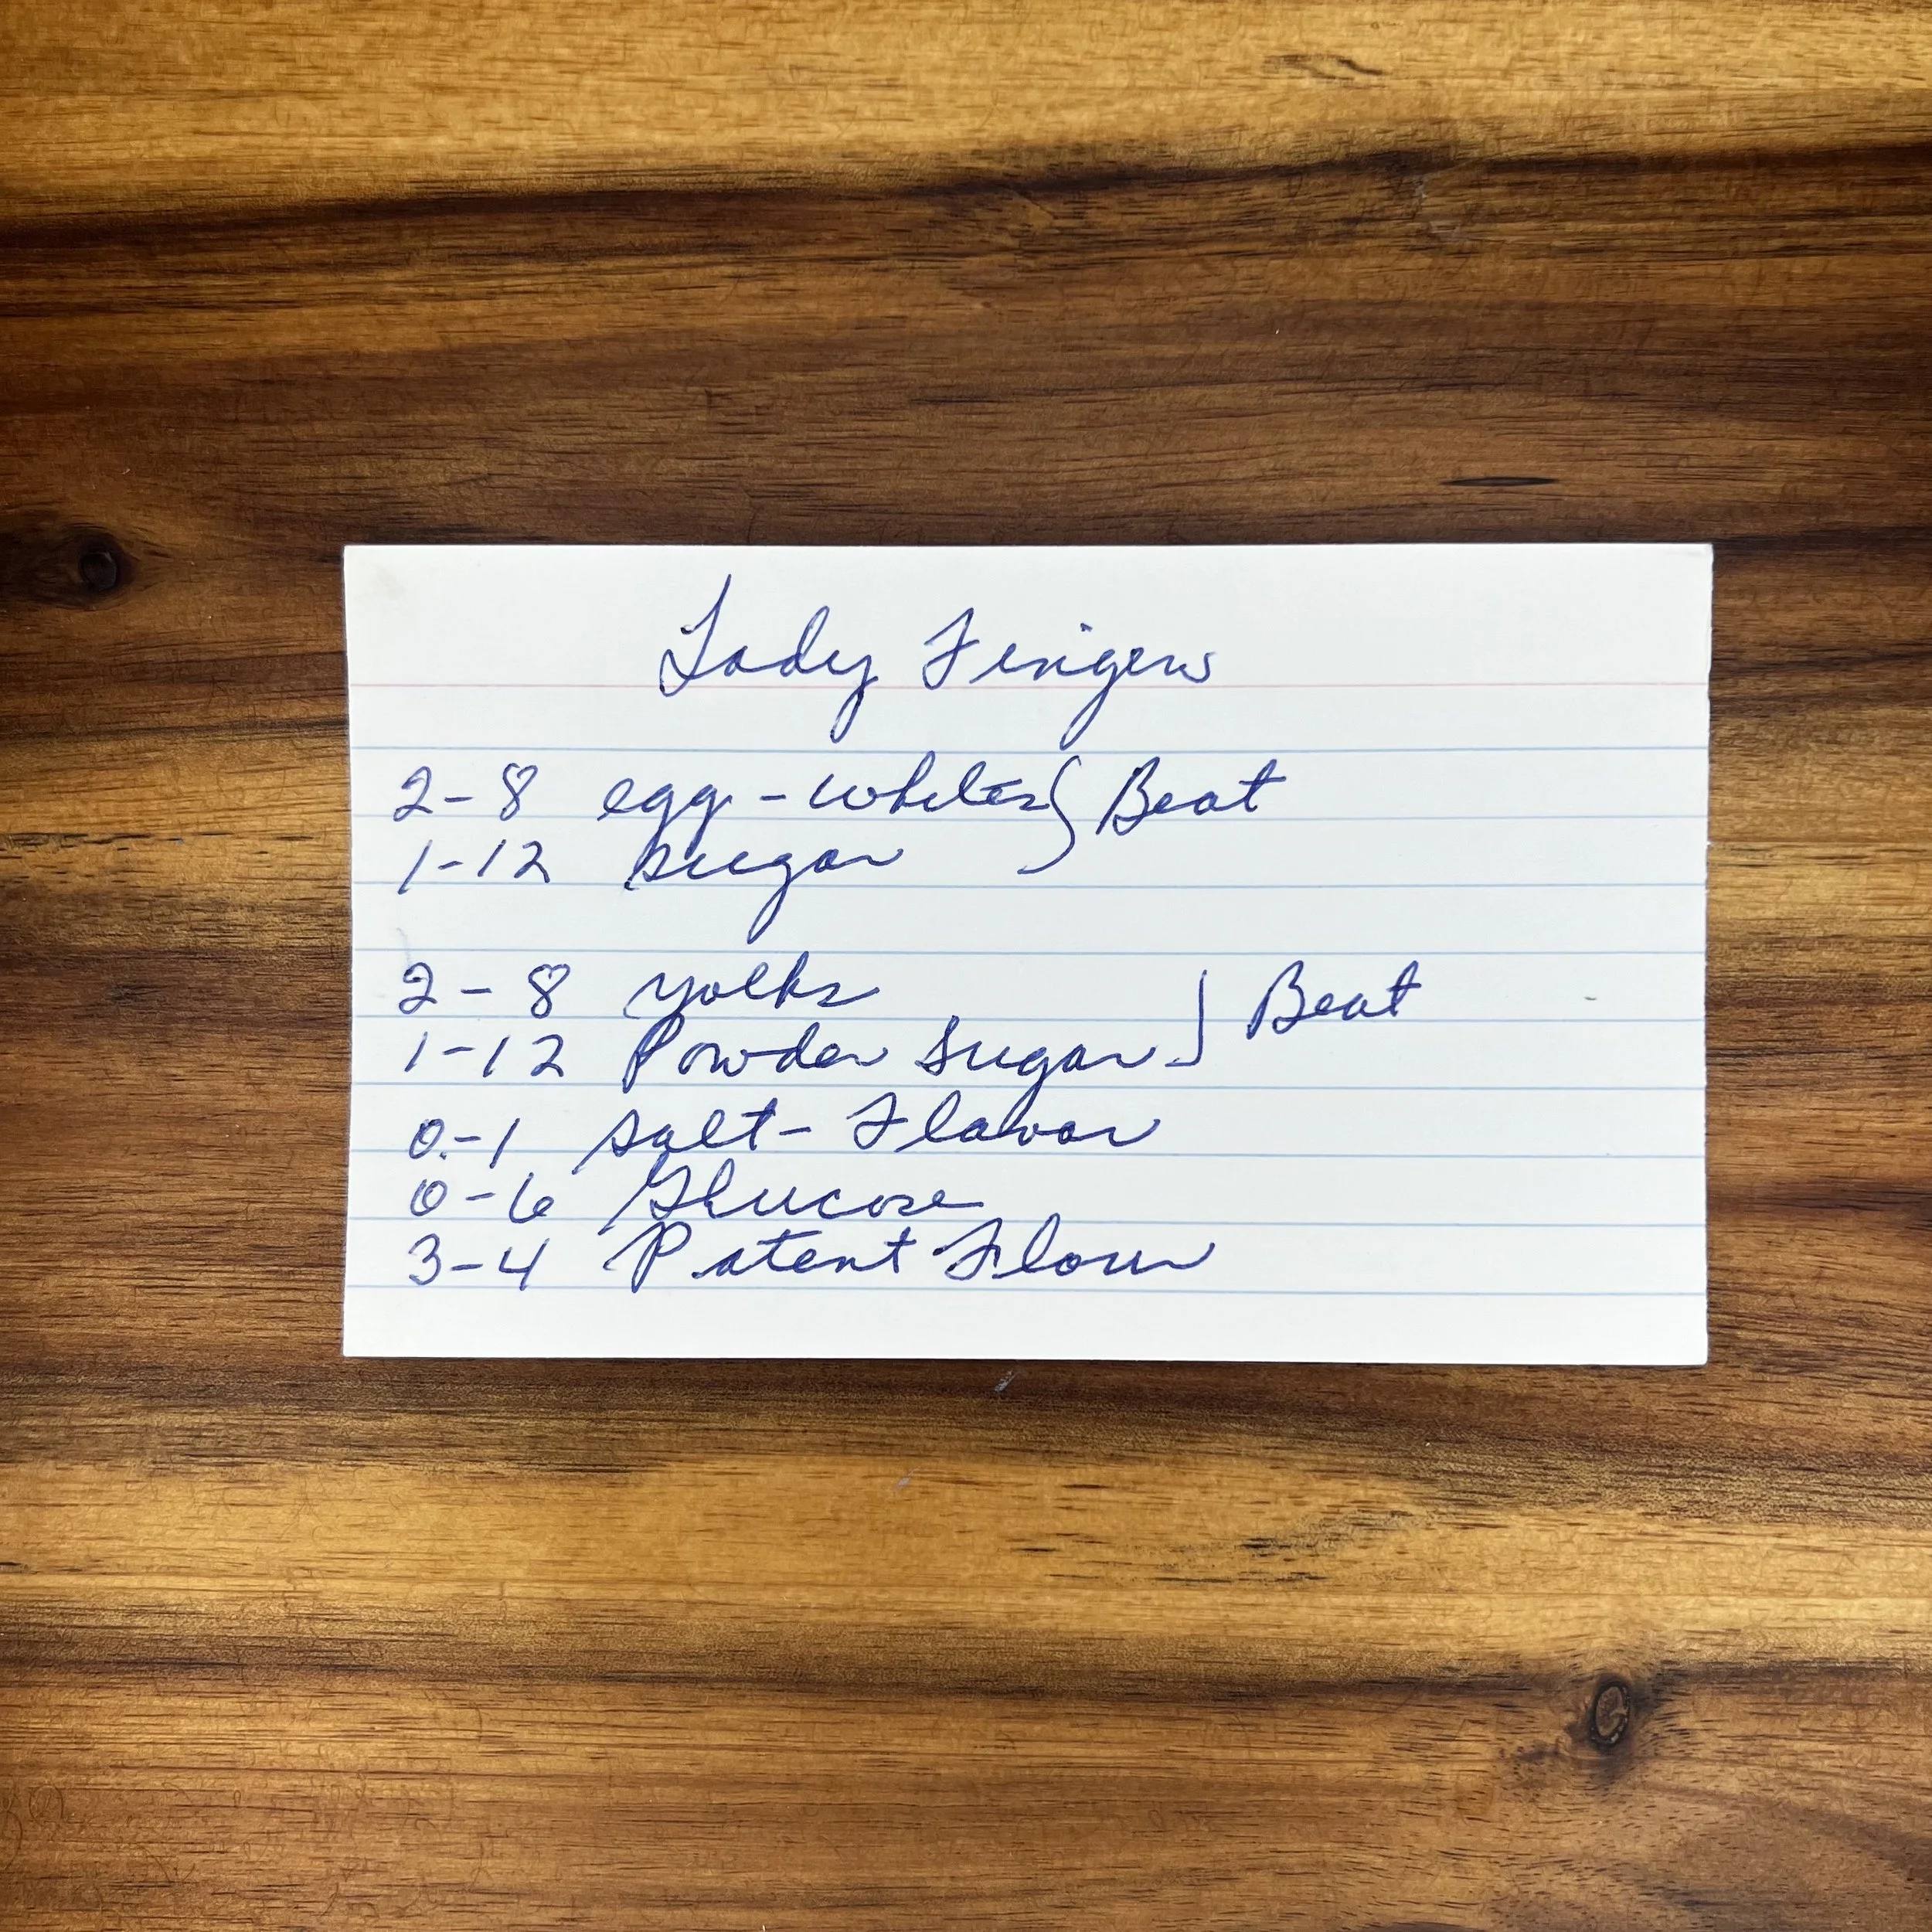 Lady Fingers
2-8 egg-whites } Beat
1-12 sugar
2-8 yolks
1-12 Powder sugar } Beat
0-1 salt- Flavor
0-6 Glucose
3-4 Patent Flour